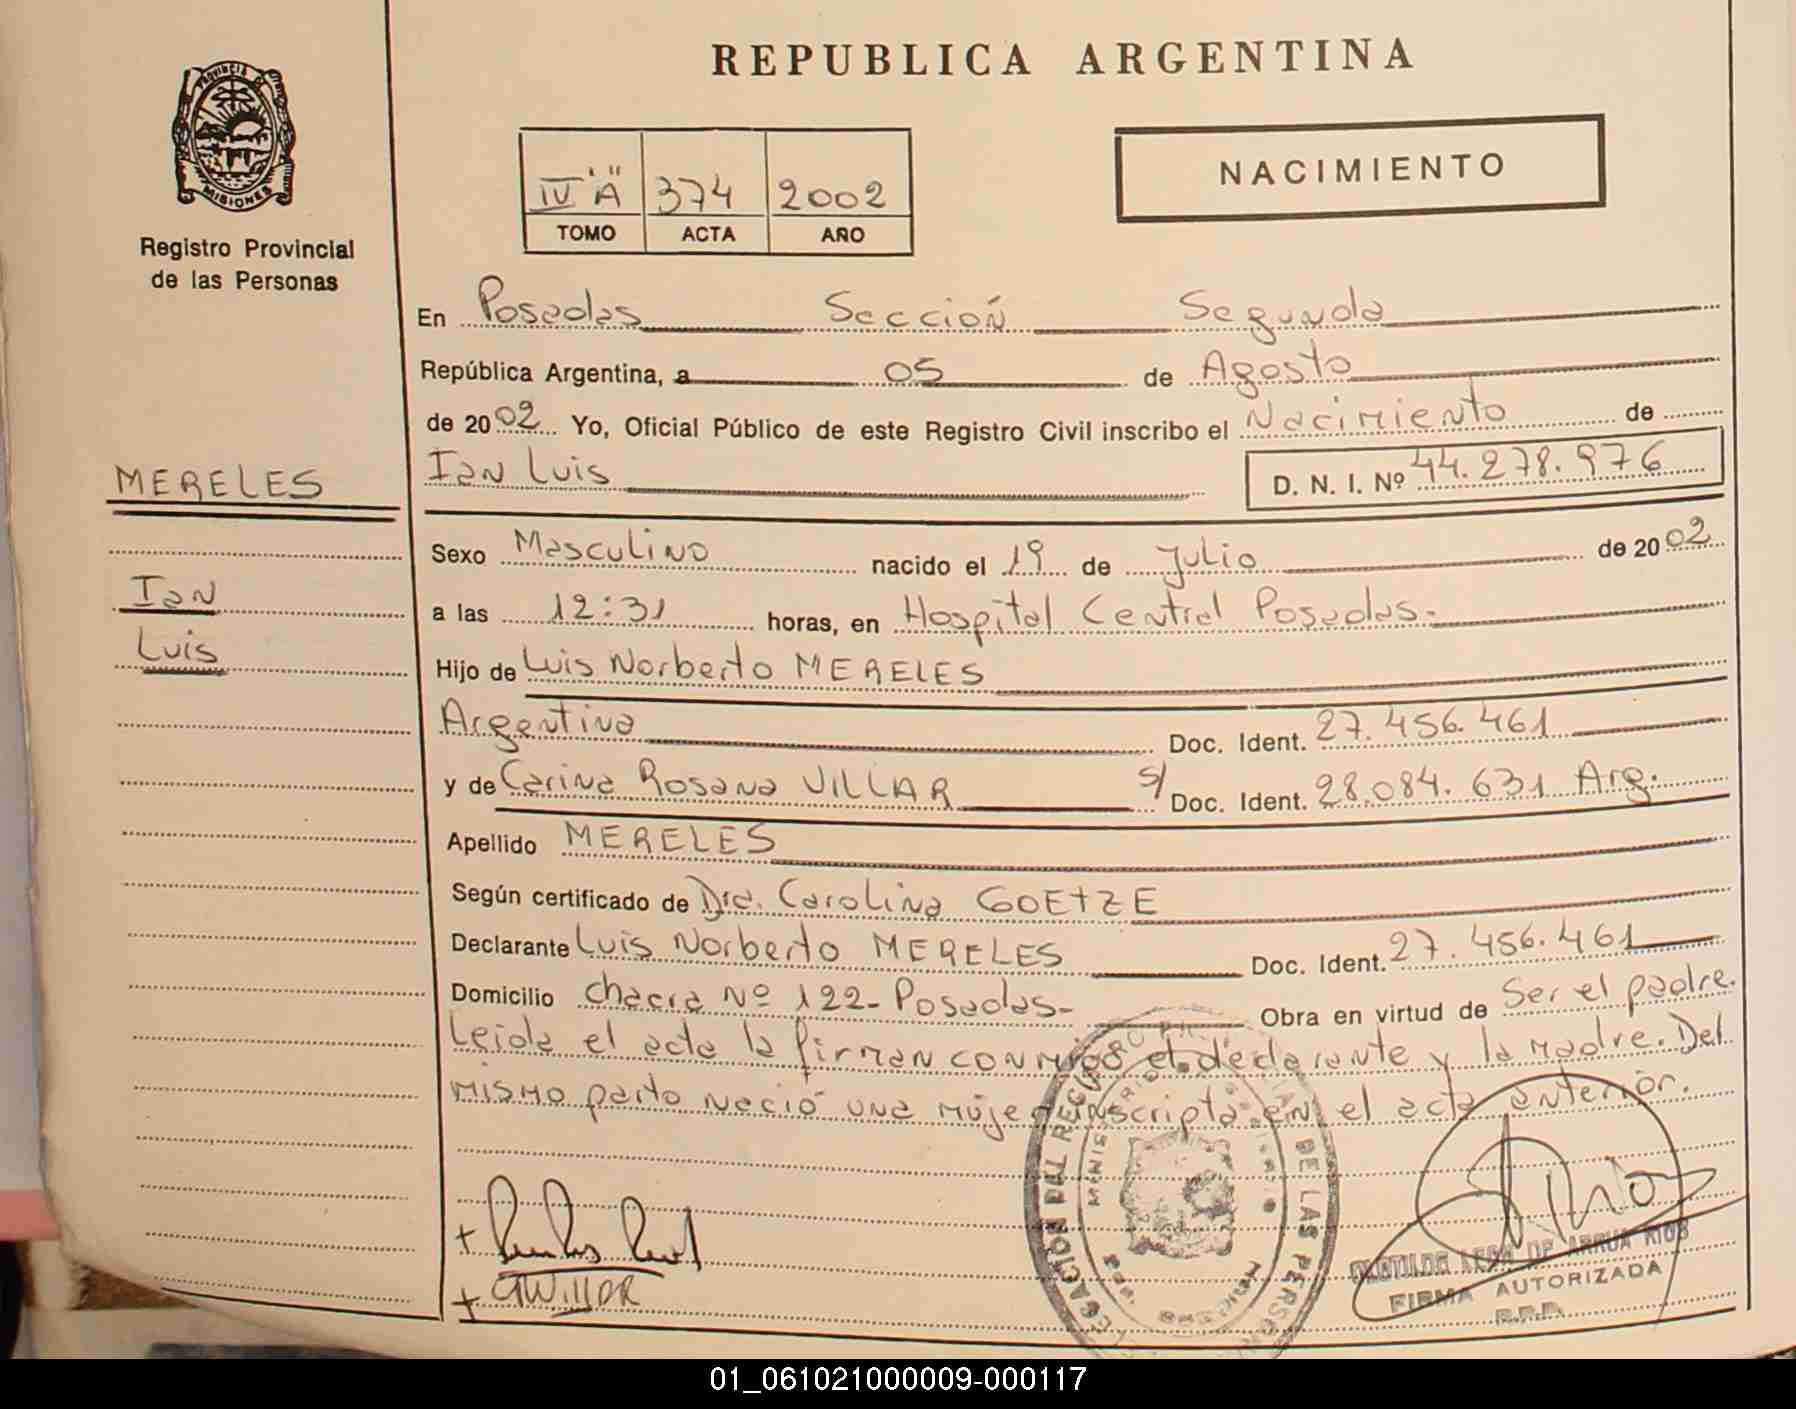 REPUBLICA ARGENTINA
PROVINCIA DE
MISIONES
Registro Provincial
de las Personas
IV "A" 374 2002
TOMO ACTA AÑO
NACIMIENTO
En Posadas Sección Segunda
República Argentina, a 05 de Agosto
de 2002 Yo, Oficial Público de este Registro Civil inscribo el Nacimiento de
MERELES
Ian Luis D. N. I. Nº 44.278.976
Sexo Masculino nacido el 19 de Julio de 2002
Ian
a las 12:31 horas, en Hospital Central Posadas.
Luis
Hijo de Luis Norberto MERELES
Argentina Doc. Ident. 27.456.461
y de Carina Rosana VILLAR s/ Doc. Ident. 28.084.631 Arg.
Apellido MERELES
Según certificado de Dra. Carolina GOETZE
Declarante Luis Norberto MERELES Doc. Ident. 27.456.461
Domicilio chacra Nº 122- Posadas- Obra en virtud de Ser el padre.
Leida el acta la firman conmigo el declarante y la madre. Del
mismo parto nació una mujer inscripta en el acta anterior.
DELEGACION DEL REGISTRO DE LAS PERSONAS
MINISTERIO
CLOTILDE DE ARRUA RIOS
FIRMA AUTORIZADA
R.P.P.
01_061021000009-000117